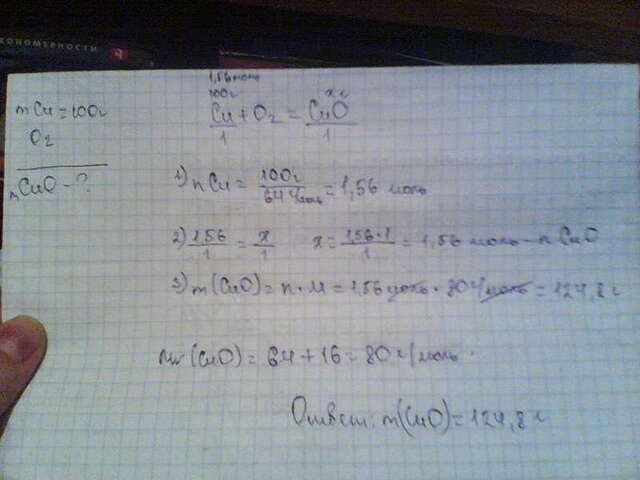 КОНОМЕРНОСТИ
1,56 моль
100г x г
mCu = 100г
Cu + O2 = CuO
1 1
O2
mCuO - ?
1) n Cu = 100г / 64 г/моль = 1,56 моль
2) 1,56 / 1 = x / 1 x = 1,56 · 1 / 1 = 1,56 моль - n CuO
3) m(CuO) = n · M = 1,56 моль · 80 г/моль = 124,8 г
(CuO) = 64 + 16 = 80 г/моль
Ответ: m(CuO) = 124,8 г